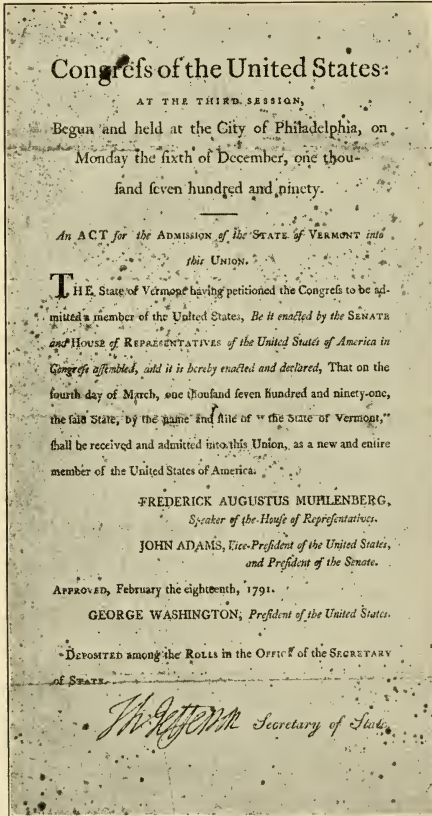 Congreſs of the United States:
AT THE THIRD SESSION,
Begun and held at the City of Philadelphia, on
Monday the ſixth of December, one thou-
ſand ſeven hundred and ninety.
An ACT for the ADMISSION of the STATE of VERMONT into
this UNION.
THE State of Vermont having petitioned the Congreſs to be ad-
mitted a member of the United States, Be it enacted by the SENATE
and HOUSE of REPRESENTATIVES of the United States of America in
Congreſs aſſembled, and it is hereby enacted and declared, That on the
fourth day of March, one thouſand ſeven hundred and ninety-one,
the ſaid State, by the name and ſtile of "the State of Vermont,"
ſhall be received and admitted into this Union, as a new and entire
member of the United States of America.
FREDERICK AUGUSTUS MUHLENBERG,
Speaker of the Houſe of Repreſentatives.
JOHN ADAMS, Vice-Preſident of the United States,
and Preſident of the Senate.
APPROVED, February the eighteenth, 1791.
GEORGE WASHINGTON, Preſident of the United States.
DEPOSITED among the ROLLS in the OFFICE of the SECRETARY
of STATE.
Th: Jefferson Secretary of State.